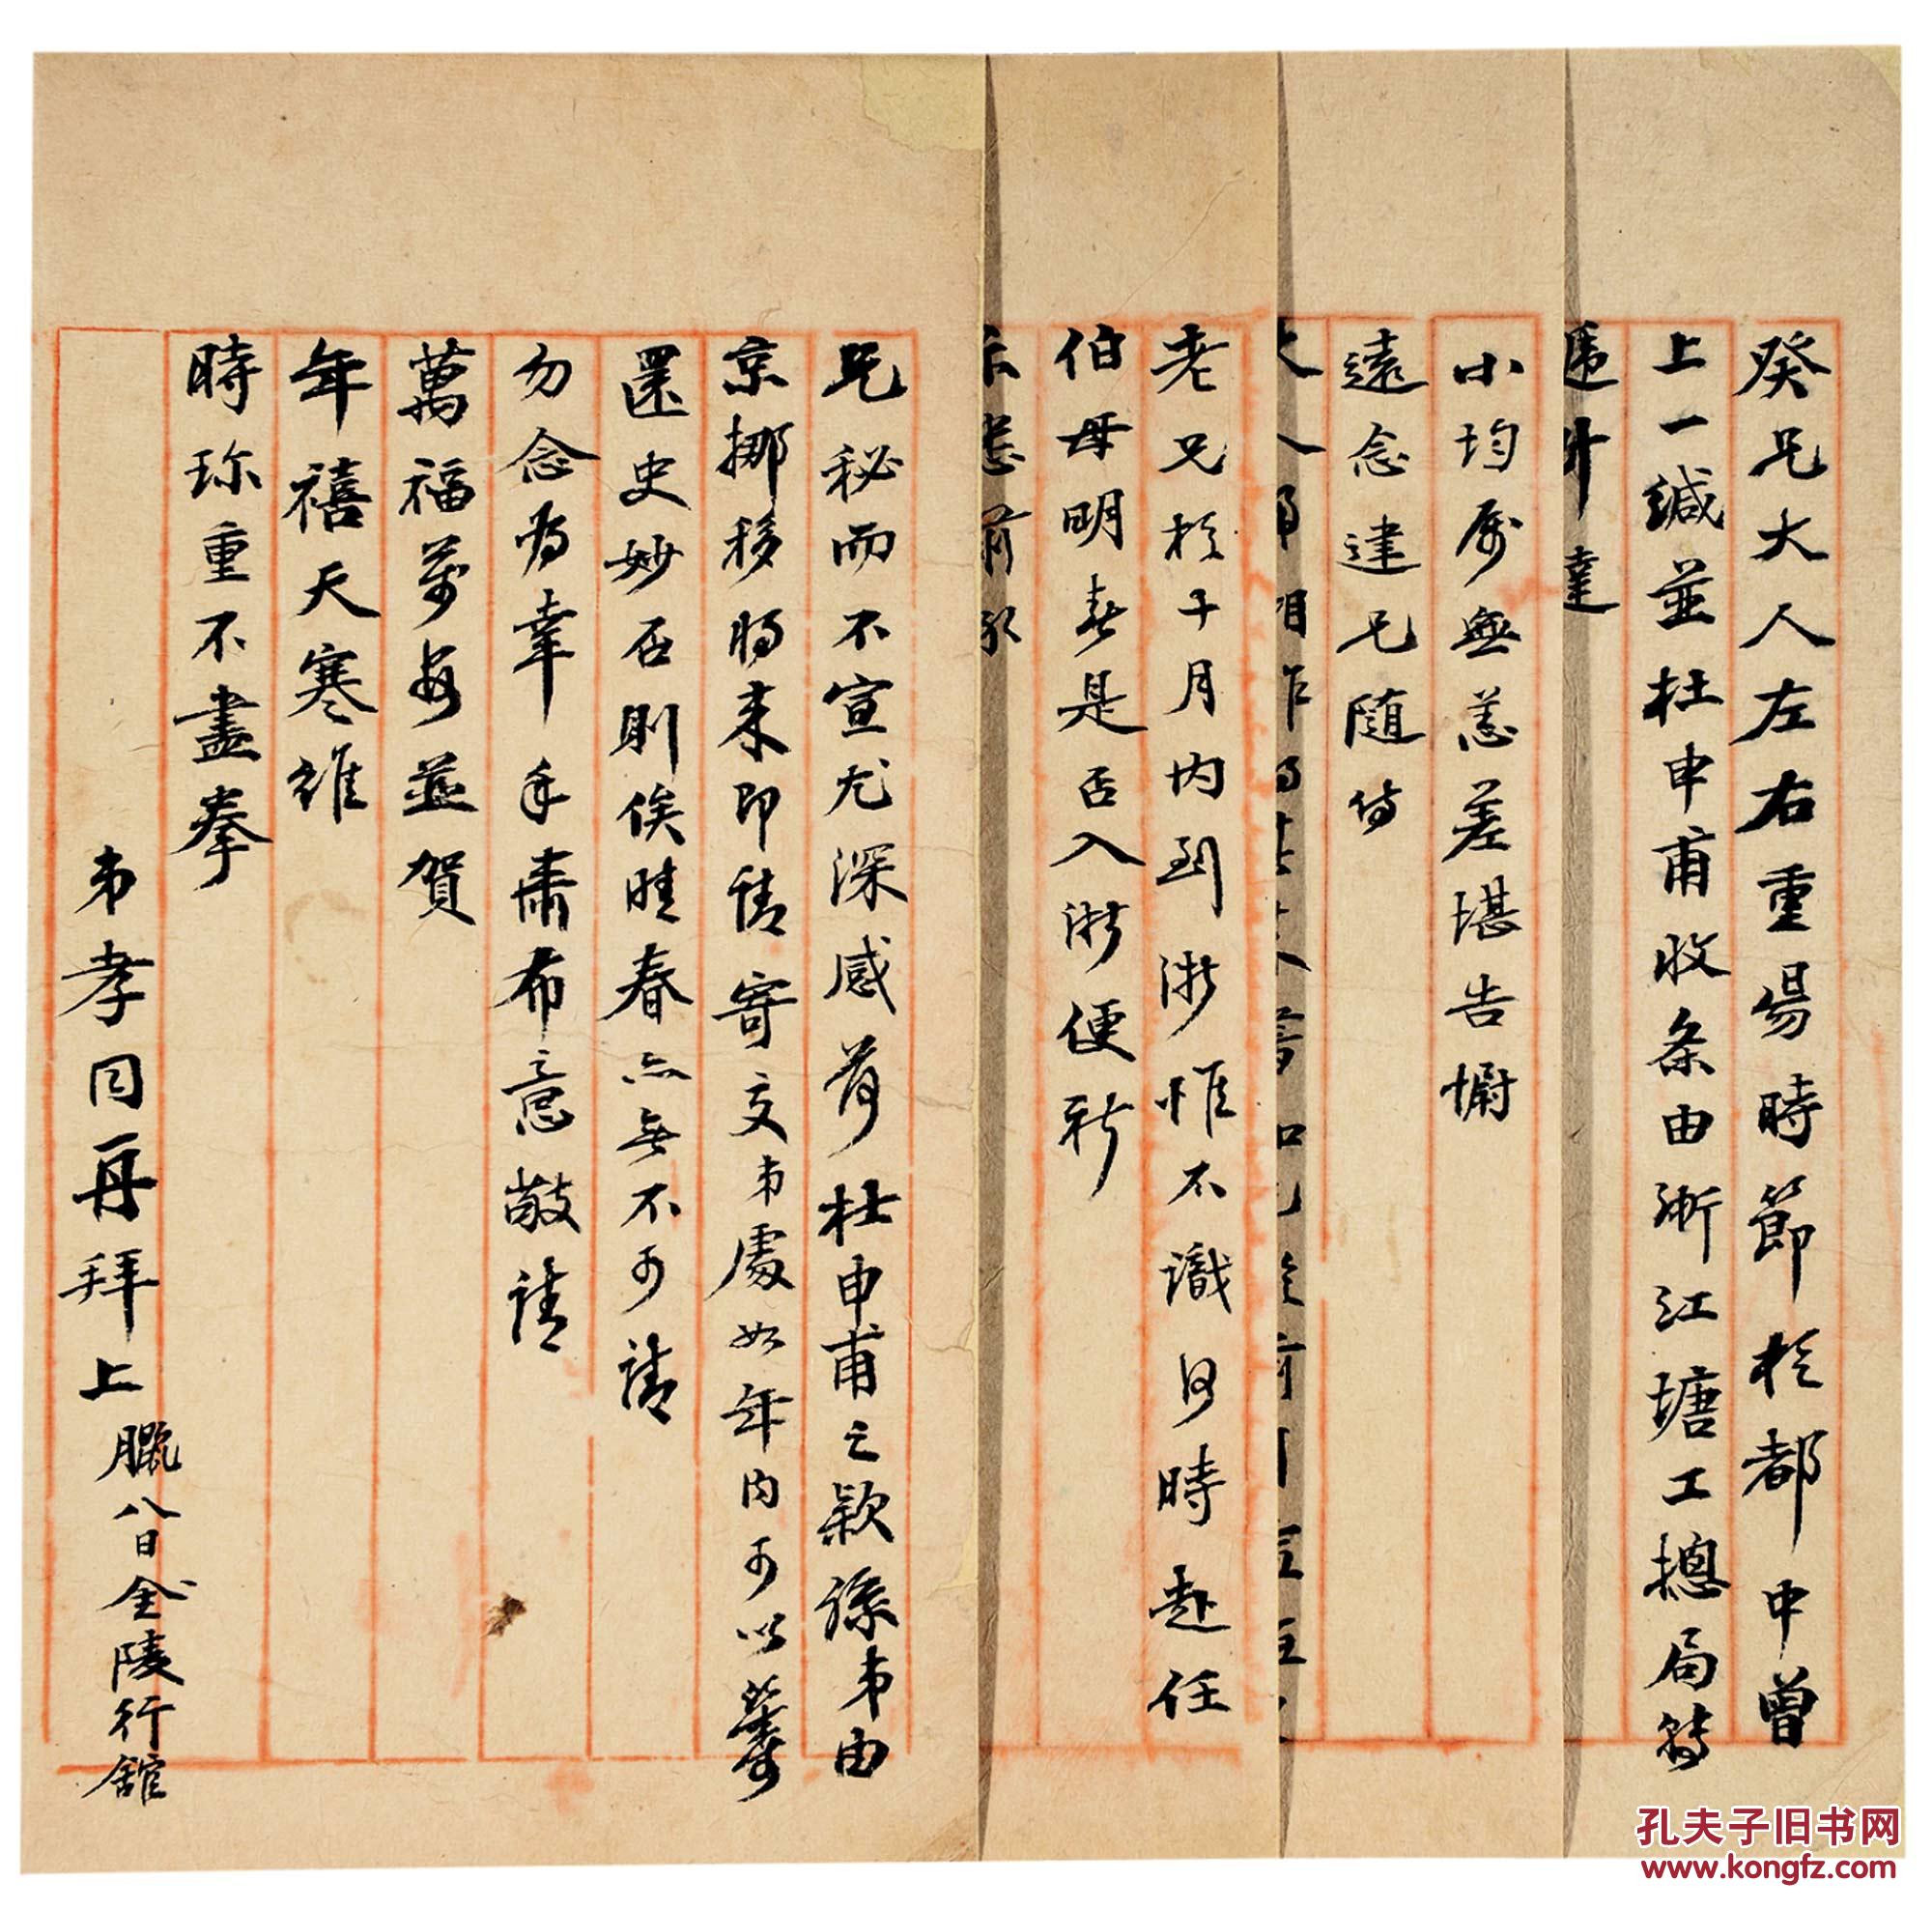 癸兄大人左右重昜時節於都中曾
上一緘並杜申甫收条由浙江塘工摠局轉
遞計達
小均處無恙差堪告慰
遠念達兄隨侍
老兄於十月內到浙惟不識何時赴任
伯母明春是否入浙便祈
示悉前承
兄秘而不宣尤深感荷杜申甫之款係弟由
京挪移將來即請寄交弟處如年內可以籌
還更妙否則俟諸春亦無不可請
勿念為幸手肅布意敬請
萬福萬安並賀
年禧天寒維
時珍重不盡拳
弟孝同再拜上 臘八日金陵行館
孔夫子旧书网
www.kongfz.com